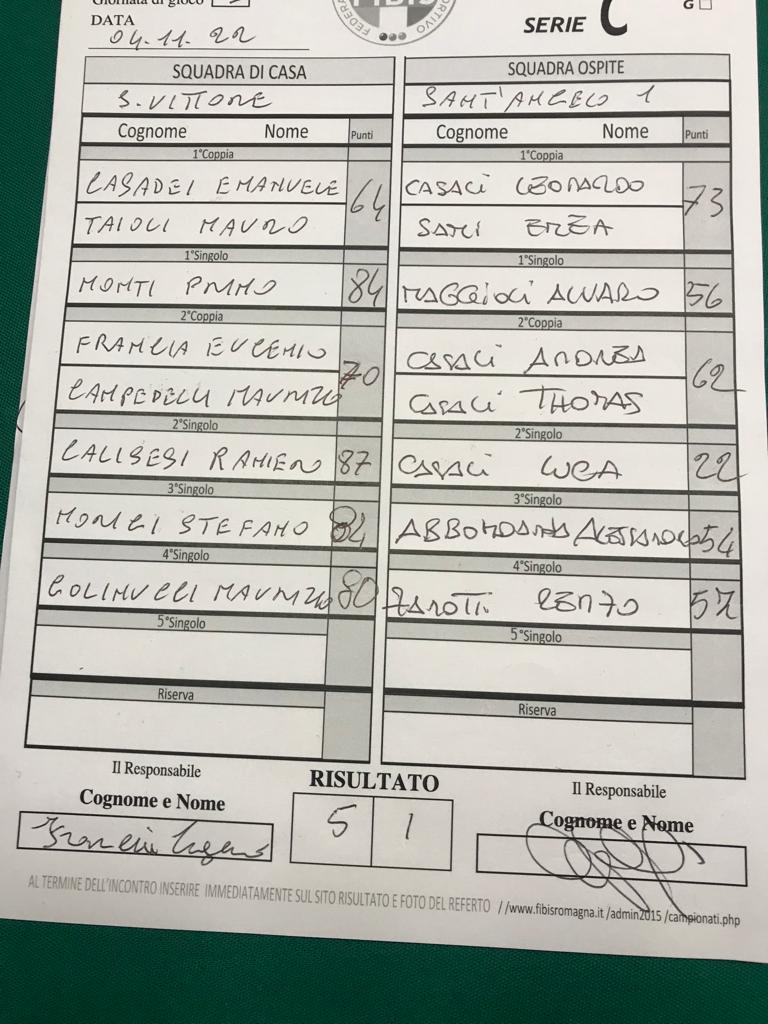 Giornata di gioco
DATA
04.11.22
FEDERA
FIBIS
ORTIVO
SERIE C
G
SQUADRA DI CASA
SQUADRA OSPITE
S. VITTORE
SANT'ANGELO 1
Cognome Nome Punti
Cognome Nome Punti
1°Coppia
1°Coppia
CASADEI EMANUELE
64
CASALI LEONARDO
73
TAIOLI MAURO
SAMI ENEA
1°Singolo
1°Singolo
MONTI PRIMO 84
MAGGIOLI ALVARO 56
2°Coppia
2°Coppia
FRANCIA EUGENIO
70
CASALI ANDREA
62
CAMPEDELLI MAURIZIO
CASALI THOMAS
2°Singolo
2°Singolo
CALISESI RANIERO 87
CASALI LUCA 22
3°Singolo
3°Singolo
MONCI STEFANO 84
ABBONDANZA ALESSANDRO 54
4°Singolo
4°Singolo
GOLINUCCI MAURIZIO 80
ZANOTTI RENZO 57
5°Singolo
5°Singolo
Riserva
Riserva
Il Responsabile
Il Responsabile
Cognome e Nome
RISULTATO
Cognome e Nome
5 1
AL TERMINE DELL'INCONTRO INSERIRE IMMEDIATAMENTE SUL SITO RISULTATO E FOTO DEL REFERTO //www.fibisromagna.it /admin2015 /campionati.php